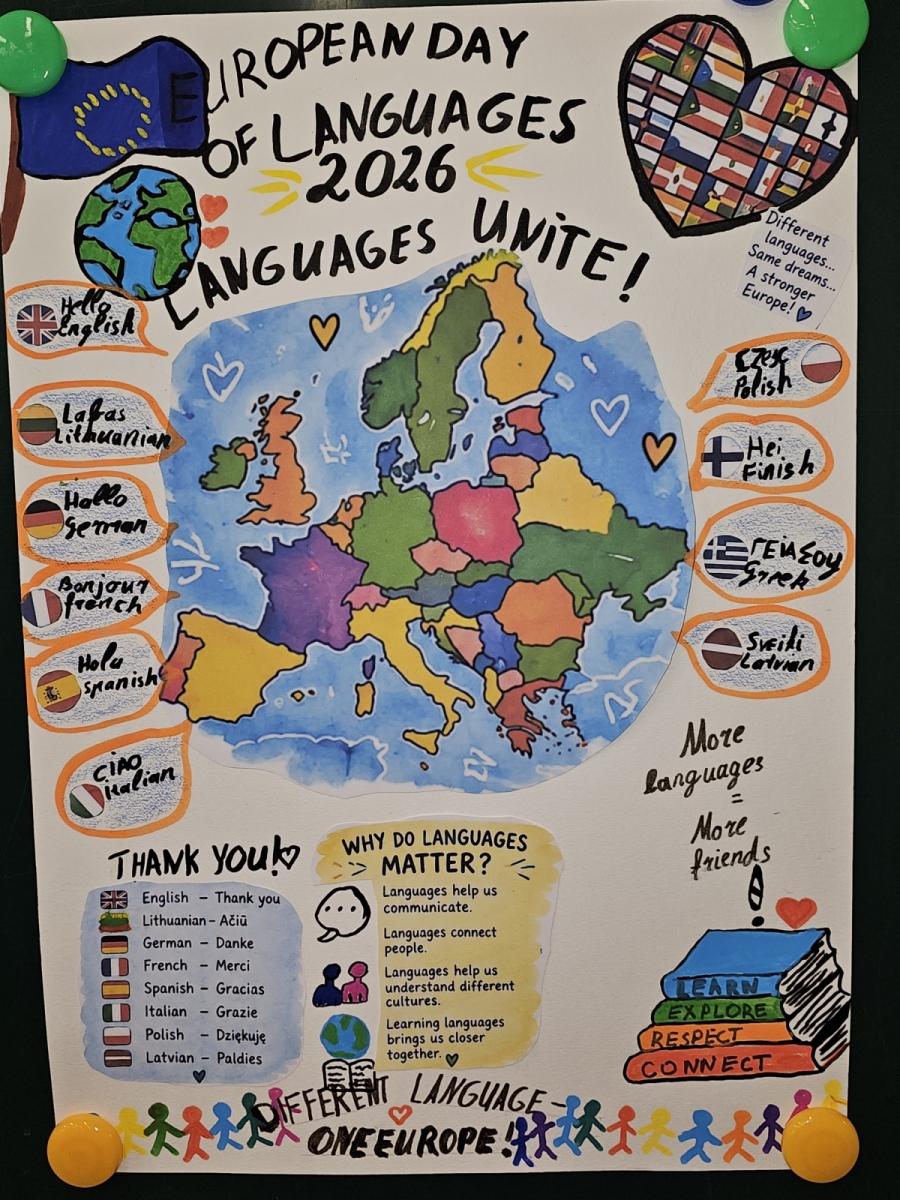 EUROPEAN DAY
OF LANGUAGES
2026
LANGUAGES UNITE!
Different
languages...
Same dreams...
A stronger
Europe!
Hello
English
Labas
Lithuanian
Hallo
German
Bonjour
french
Hola
spanish
CiAO
italian
CZEŚĆ
Polish
Hei
Finish
ΓΕΙΑ ΣΟΥ
Greek
Sveiki
Latvian
More
languages
=
More
friends
!
THANK YOU!
English – Thank you
Lithuanian – Ačiū
German – Danke
French – Merci
Spanish – Gracias
Italian – Grazie
Polish – Dziękuję
Latvian – Paldies
WHY DO LANGUAGES
MATTER?
Languages help us
communicate.
Languages connect
people.
Languages help us
understand different
cultures.
Learning languages
brings us closer
together.
LEARN
EXPLORE
RESPECT
CONNECT
DIFFERENT LANGUAGE –
ONE EUROPE!